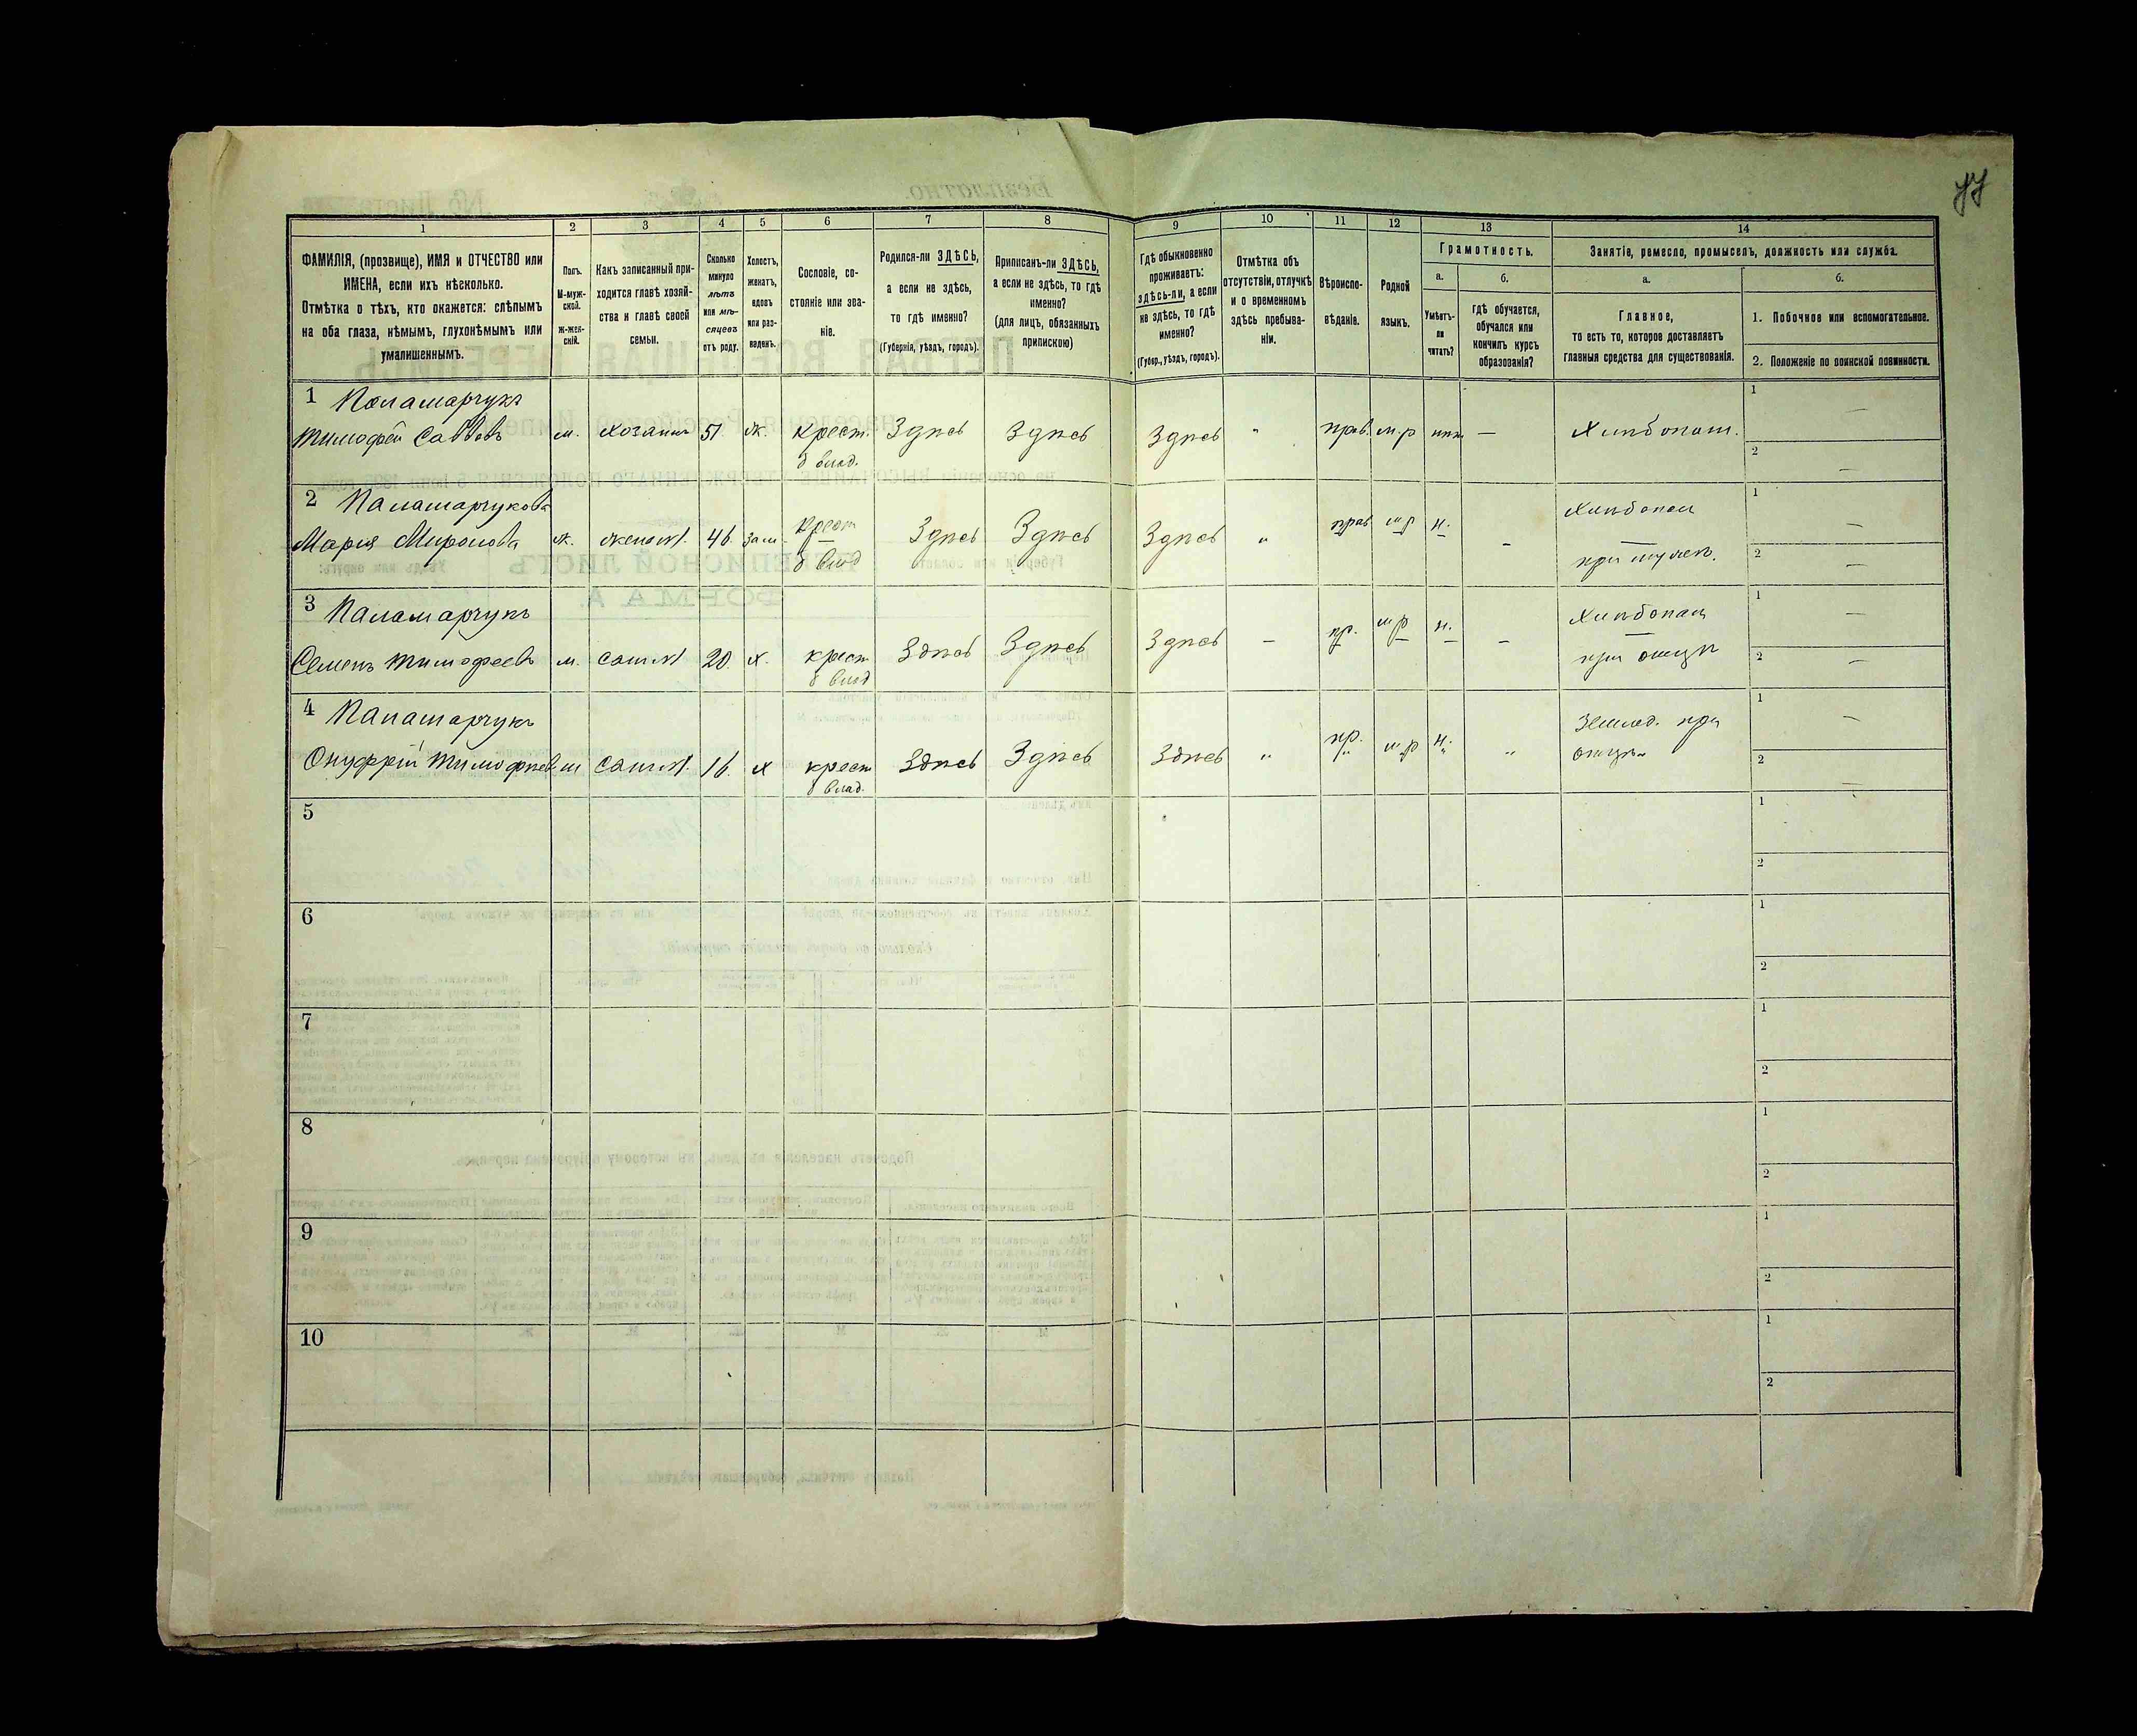 77
1
2
3
4
5
6
7
8
9
10
11
12
13
14
ФАМИЛІЯ, (прозвище), ИМЯ и ОТЧЕСТВО или
ИМЕНА, если ихъ нѣсколько.
Отмѣтка о тѣхъ, кто окажется: слѣпымъ
на оба глаза, нѣмымъ, глухонѣмымъ или
умалишеннымъ.
Полъ.
М-муж-
ской.
ж-жен-
скій.
Какъ записанный при-
ходится главѣ хозяй-
ства и главѣ своей
семьи.
Сколько
минуло
лѣтъ
или мѣ-
сяцевъ
отъ роду.
Холостъ,
женатъ,
вдовъ
или раз-
веденъ.
Сословіе, со-
стояніе или зва-
ніе.
Родился-ли ЗДѢСЬ,
а если не здѣсь,
то гдѣ именно?
(Губернія, уѣздъ, городъ).
Приписанъ-ли ЗДѢСЬ,
а если не здѣсь, то гдѣ
именно?
(для лицъ, обязанныхъ
припискою)
Гдѣ обыкновенно
проживаетъ:
здѣсь-ли, а если
не здѣсь, то гдѣ
именно?
(Губер., уѣздъ, городъ).
Отмѣтка объ
отсутствіи, отлучкѣ
и о временномъ
здѣсь пребыва-
ніи.
Вѣроиспо-
вѣданіе.
Родной
языкъ.
Грамотность.
а.
Умѣетъ-
ли
читать?
б.
гдѣ обучается,
обучался или
кончилъ курсъ
образованія?
Занятіе, ремесло, промыселъ, должность или служба.
а.
Главное,
то есть то, которое доставляетъ
главныя средства для существованія.
б.
1. Побочное или вспомогательное.
2. Положеніе по воинской повинности.
1 Паламарчукъ
Тимофей Саввовъ м. хозяинъ 51 ж. крест. Здѣсь Здѣсь Здѣсь " прав. м.р нѣт — Хлѣбопаш.
б влад.
1 —
2 —
2 Паламарчукова
Мария Миронова ж. жена 46 зам. крест Здѣсь Здѣсь Здѣсь " прав м р н. - Хлѣбопаш
б влад
при мужѣ.
1 —
2 —
3 Паламарчукъ
Семенъ Тимофеевъ м. сынъ 20. х. крест Здѣсь Здѣсь Здѣсь — пр. м р н. — Хлѣбопаш
б влад
при отцѣ
1 —
2 —
4 Паламарчукъ
Онуфрій Тимофѣев м сынъ 16. х крест Здѣсь Здѣсь Здѣсь " пр. м р н. " Землед. при
б влад.
отцѣ
1 —
2 —
5
1
2
6
1
2
7
1
2
8
1
2
9
1
2
10
1
2